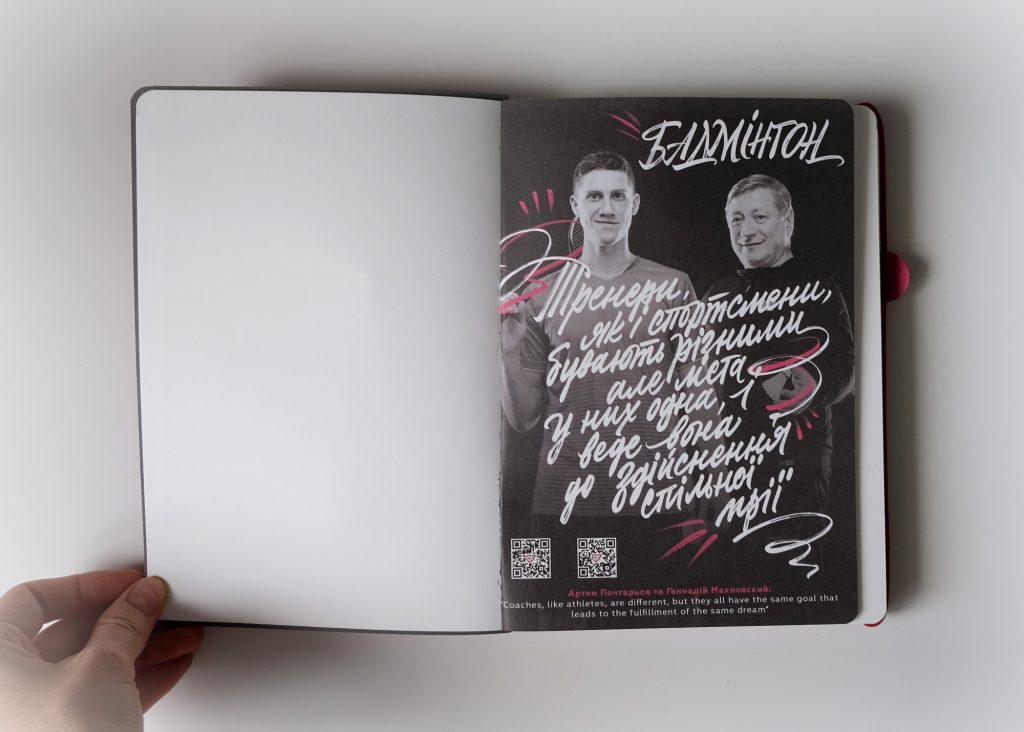 БАДМІНТОН
Тренери,
як і спортсмени,
бувають різними
але мета
у них одна, і
веде вона
до здійснення
спільної
мрії"
Артем Почтарьов та Геннадій Махновский:
"Coaches, like athletes, are different, but they all have the same goal that
leads to the fulfillment of the same dream"